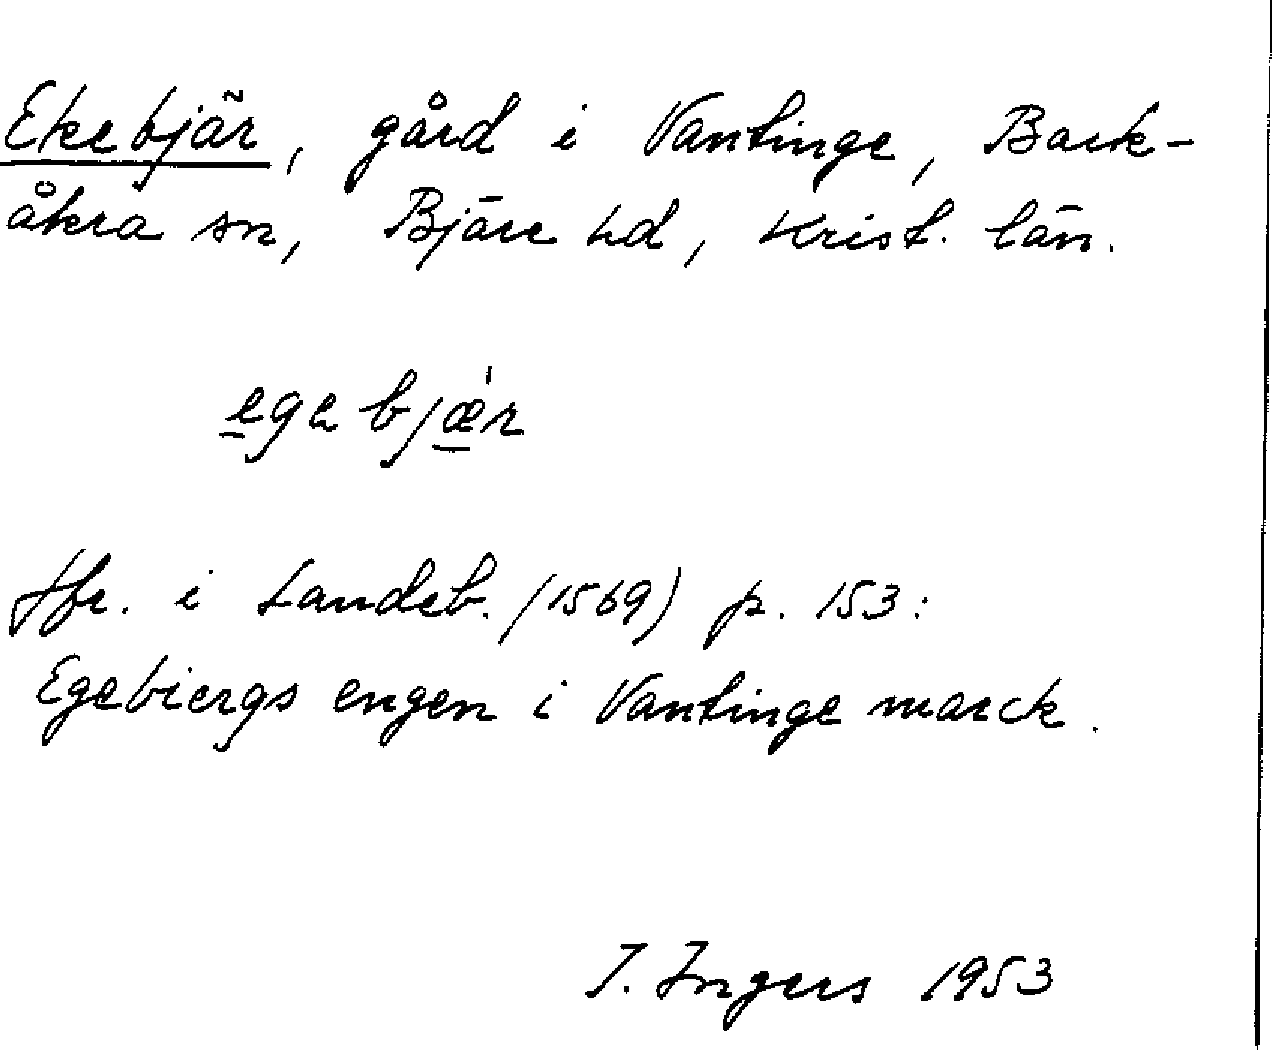 Ekebjär, gård i Vantinge, Bark-
åkra sn, Bjäre hd, Krist. län.
egebjæ'r
Jfr. i Landeb. (1569) p. 153:
Egebiergs engen i Vantinge marck.
I. Ingers 1953